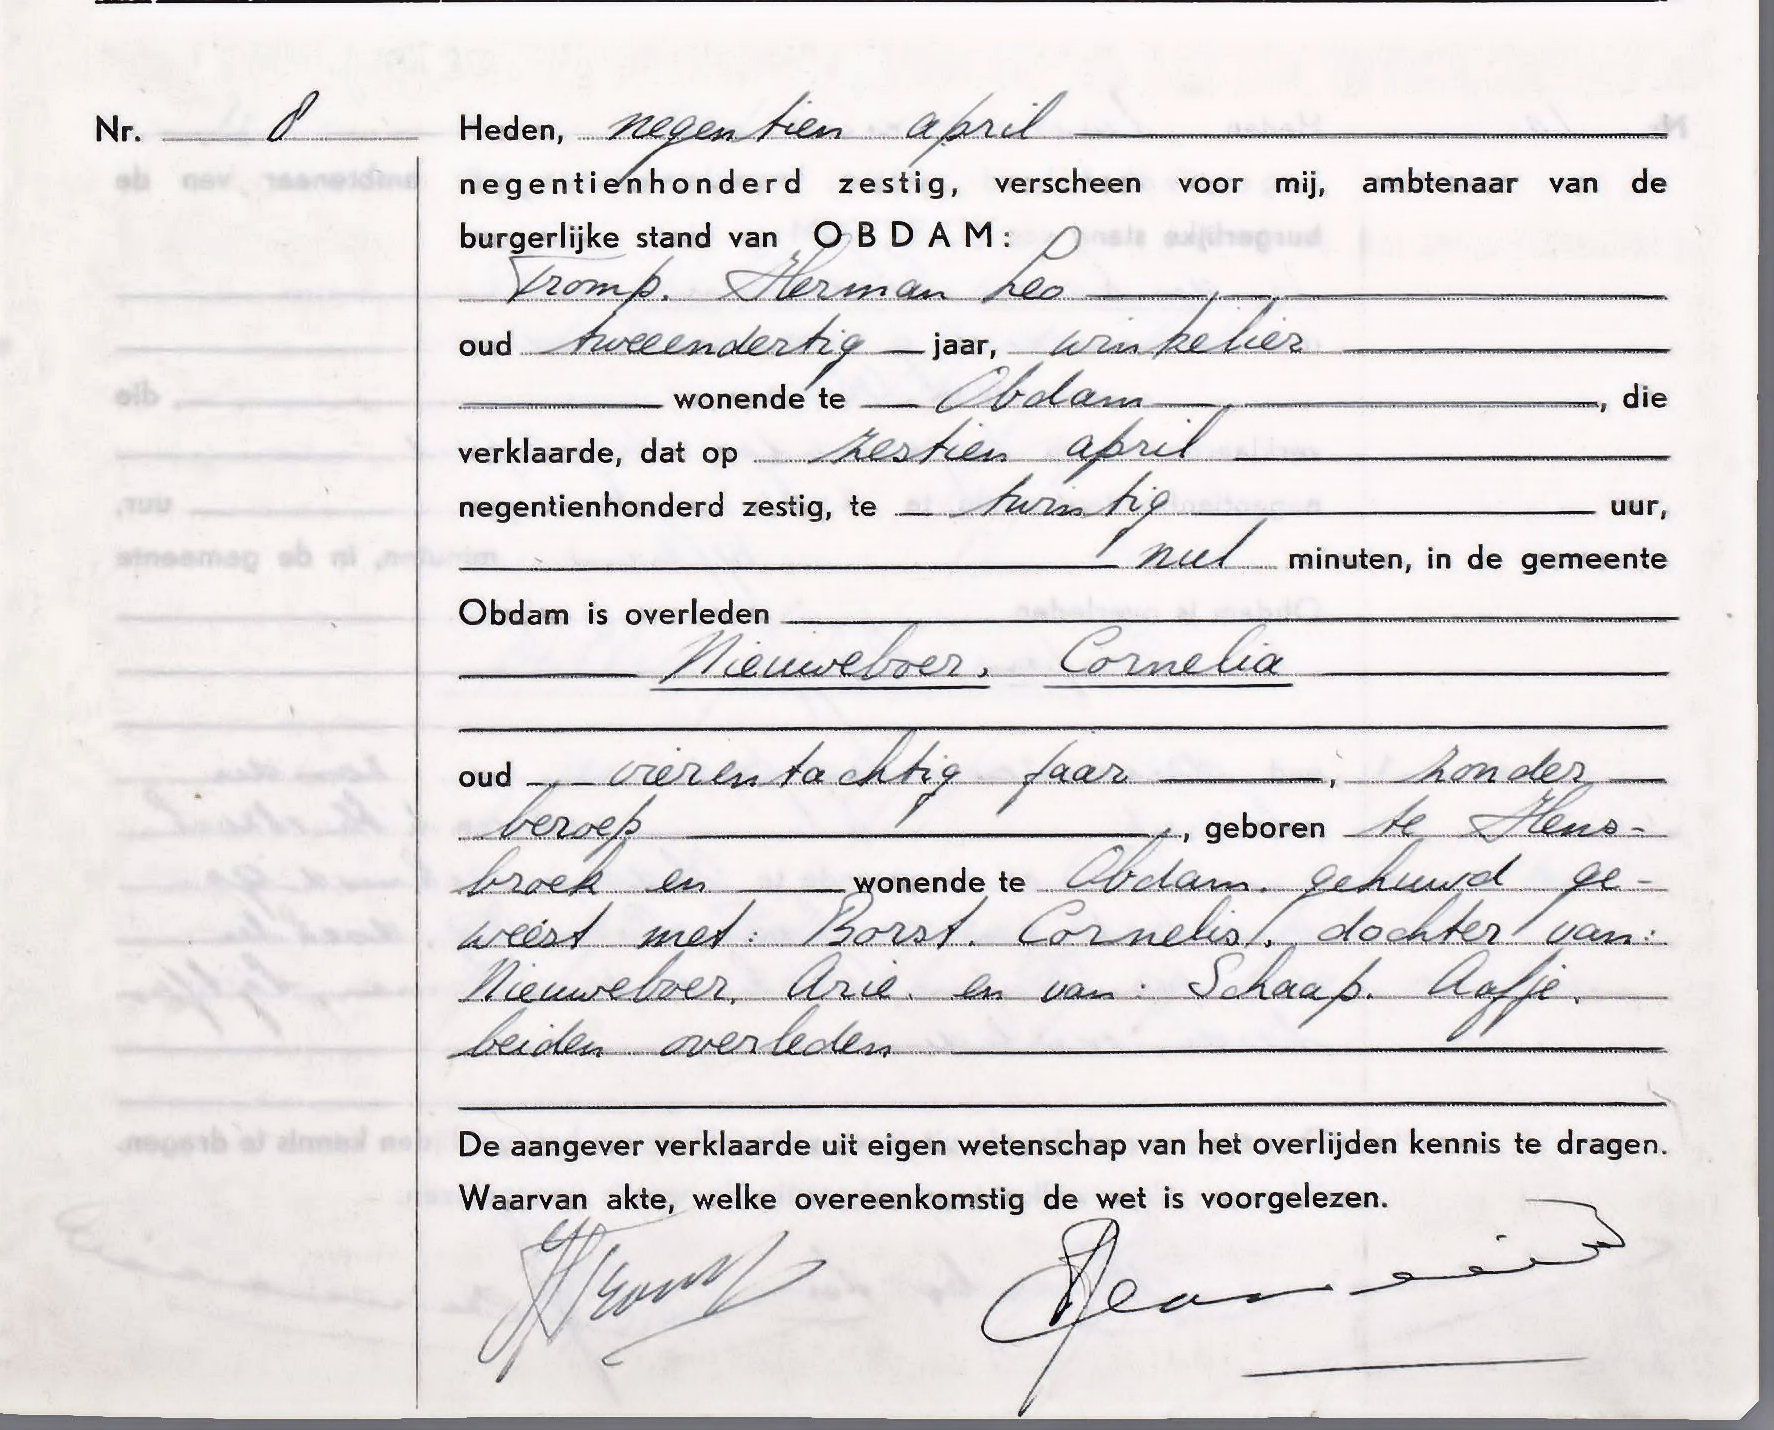 Nr. 8
Heden, negentien april
negentienhonderd zestig, verscheen voor mij, ambtenaar van de
burgerlijke stand van OBDAM:
Tromp. Herman Leo
oud tweeendertig jaar, winkelier
wonende te Obdam, die
verklaarde, dat op zestien april
negentienhonderd zestig, te twintig uur,
nul minuten, in de gemeente
Obdam is overleden
Nieuweboer, Cornelia
oud vierentachtig jaar, zonder
beroep, geboren te Hens-
broek en wonende te Obdam. gehuwd ge-
weest met: Borst. Cornelis. dochter van:
Nieuweboer. Arie. en van: Schaap. Aafje.
beiden overleden
De aangever verklaarde uit eigen wetenschap van het overlijden kennis te dragen.
Waarvan akte, welke overeenkomstig de wet is voorgelezen.
HTromp